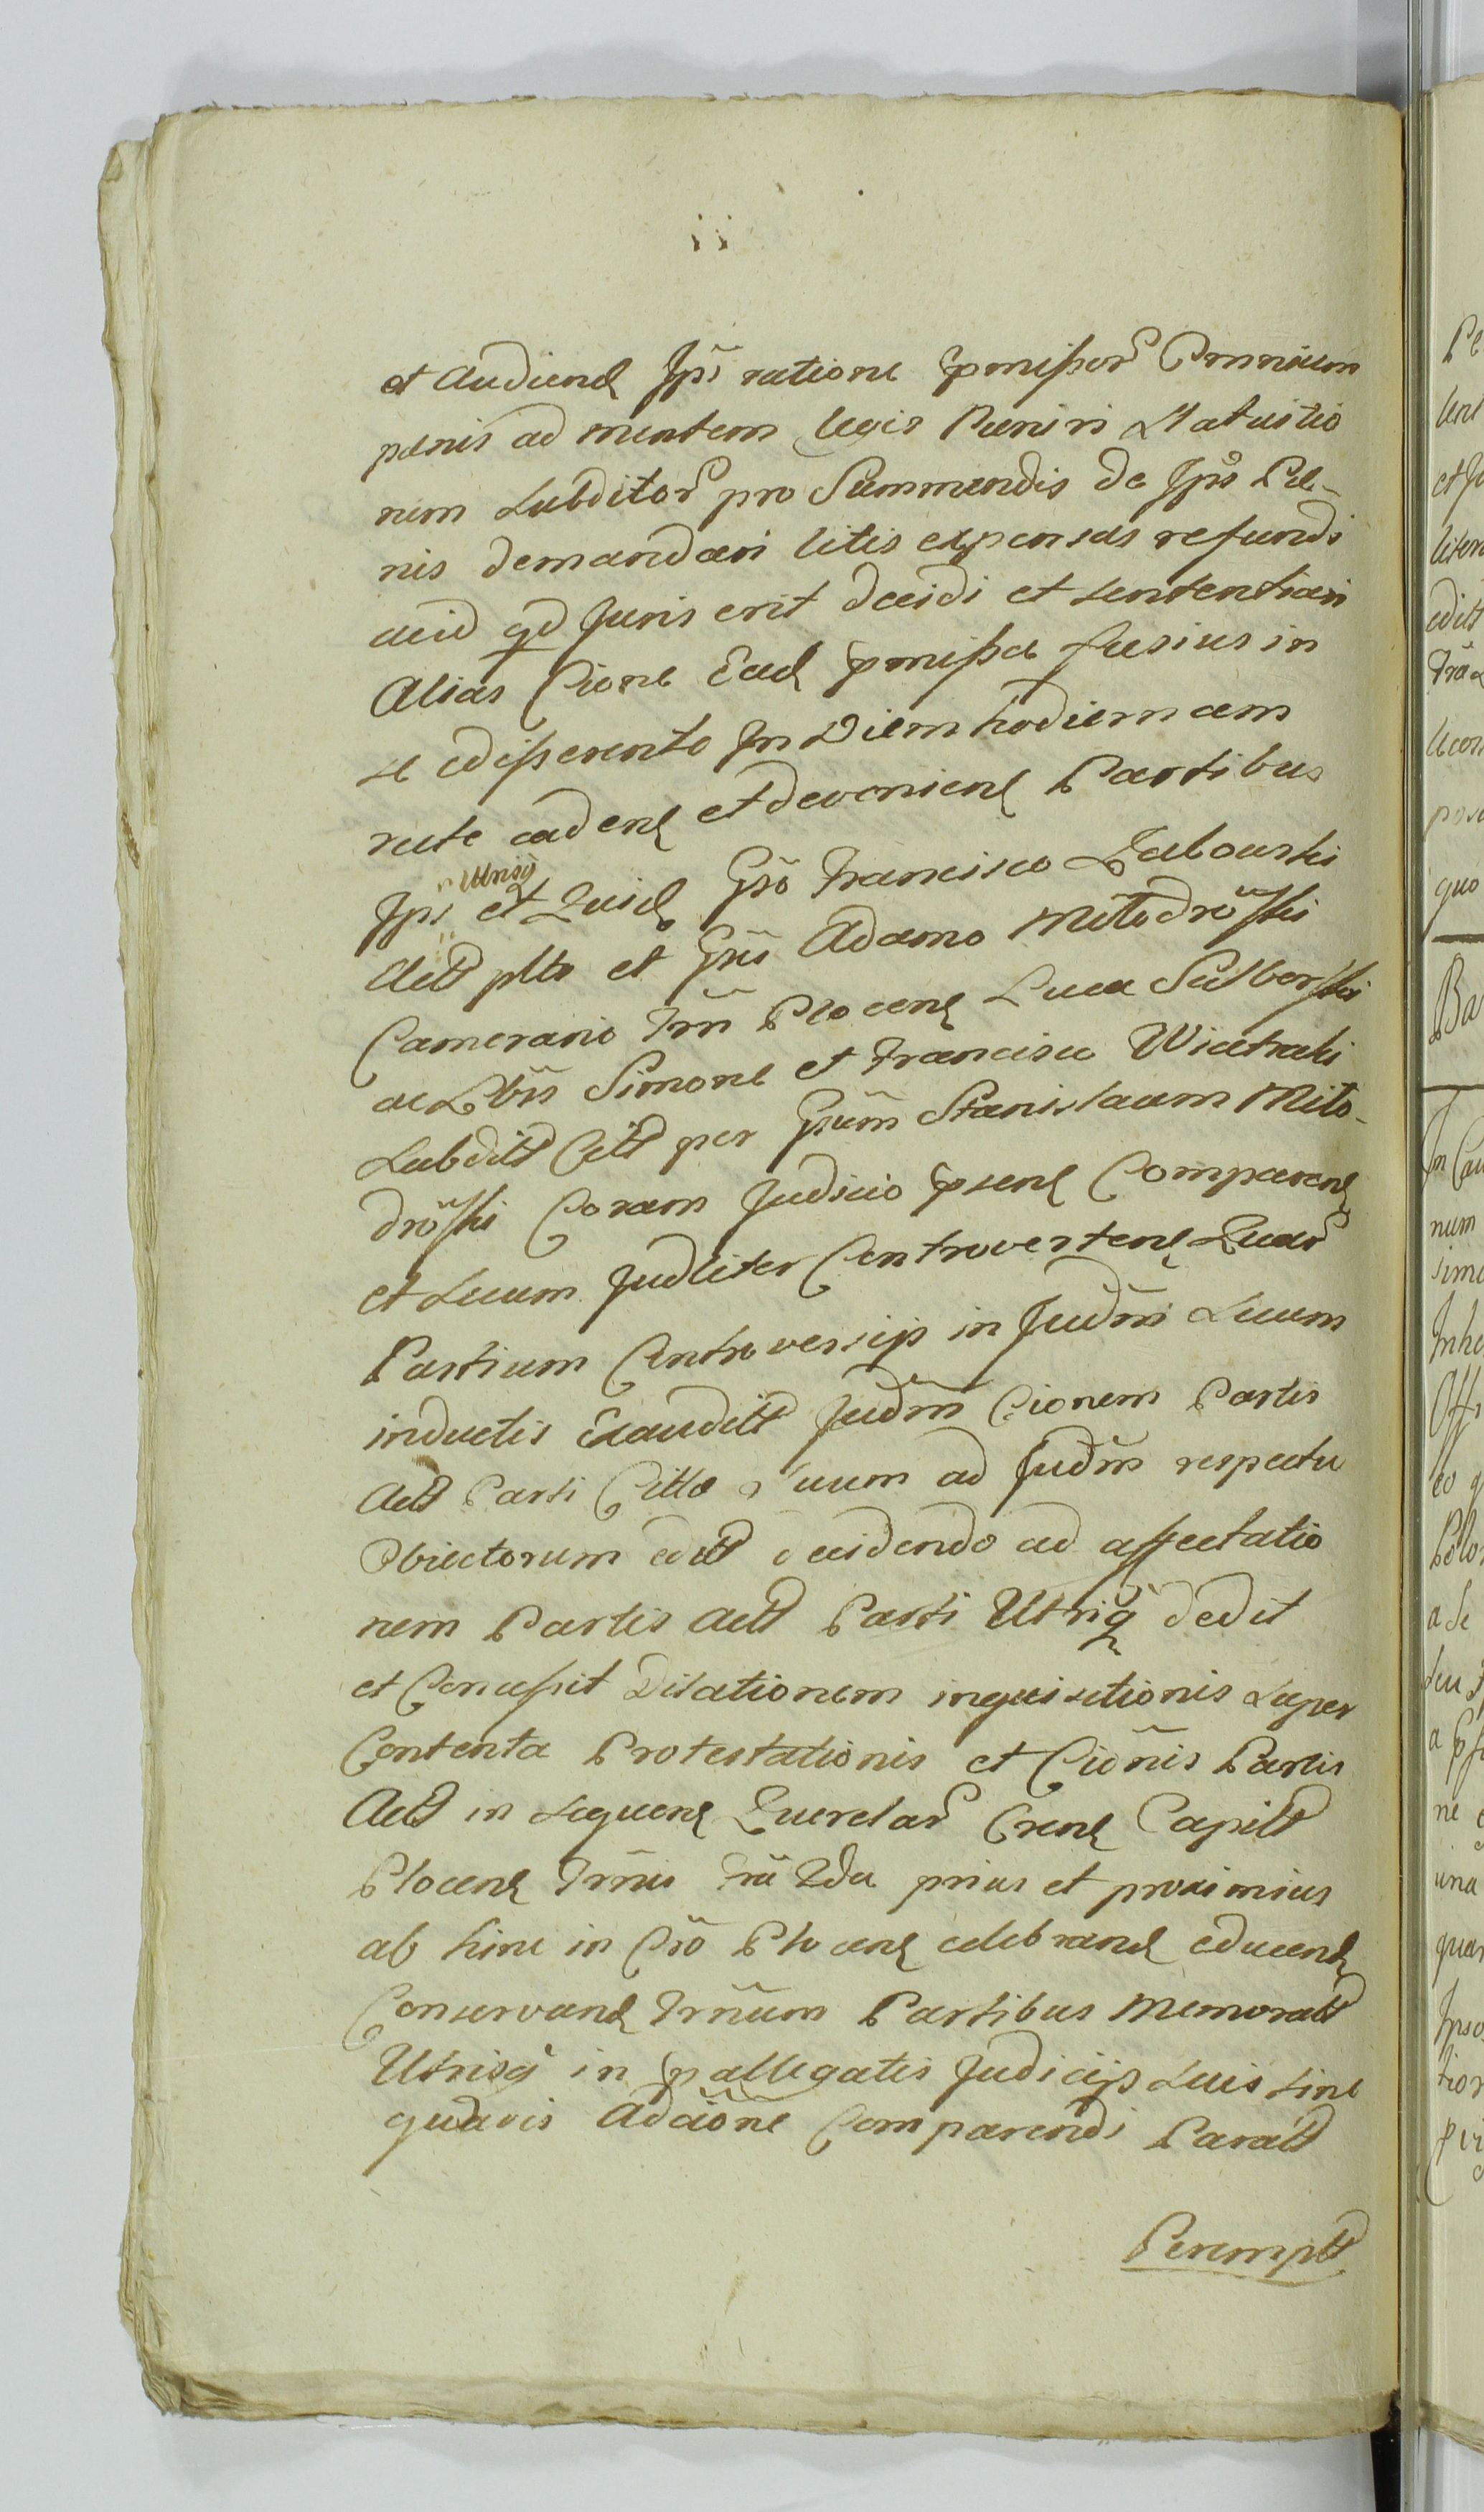 ii
et Audiend Jps̃ ratione p̃missor Omnium
pœnis ad mentem legis Puniri Statuitio
nem Subditor pro Summendis de Jps̃ Pæ-
nis demandari litis expensas refundi
acid qd Juris erit decidi et sententiari
Alias Cione Ead p̃missa fusius in
se edisserente In Diem hodiernam
recte caden et devenien Partibus
Utrisq
Jps̃ et Quid Gsõ Francisco Zabourski
Actt pltõ et Gsũ Adamo Młodrõski
Camerario Trrũ Plocen Luca Sulborski
ac Lbrs̃ Simone et Francisco Wiatraki
Subditt Citt per Gsũm Stanislaum Mło-
drõski Coram Judicio p̃sen Comparen
et Suum Judliter Controverten Quar
Partium Controversijs in Judm̃ Suum
inductis Exauditt Judm̃ Cionem Partis
Actt Parti Cittæ suum ad Judm̃ respectu
Obiectorum editt decidendo ad affectatio
nem Partis Actt Parti Utriq dedit
et Concessit Dilationem inquisitionis super
Contenta Protestationis et Ciõnis Partis
Actt in sequen Querelar Cren Capitt
Plocen Trrñis prius et proximius
ab hinc in Crõ Plocen celebrand educend
Conservand Trm̃um Partibus Memoratt
Utrisq in p̃allegatis Judicijs Suis sine
quavis Adciõne Comparendi Paratt
Perempt